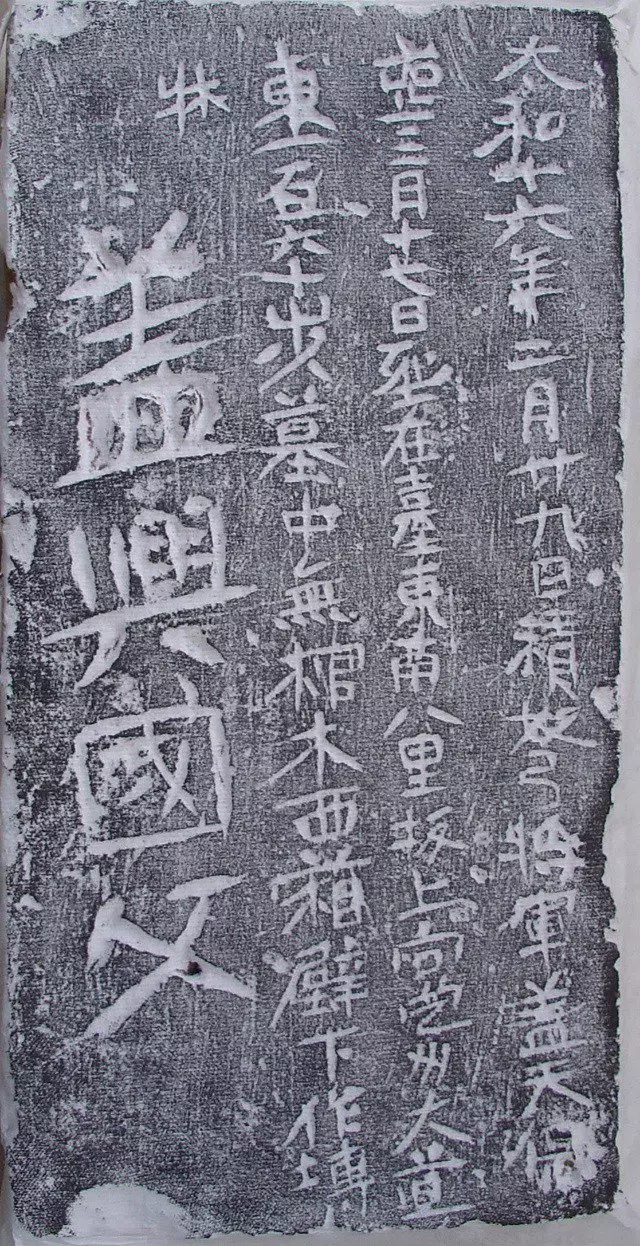 太和十六年二月廿九日積弩將軍蓋天保
喪三月十七日葬在臺東南八里坂上向定州大道
東一百六十步墓中無棺木西箱壁下作塼
牀
蓋興國父